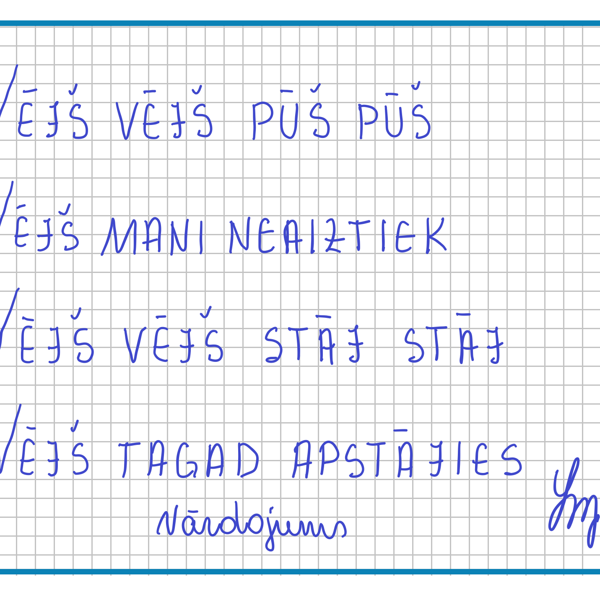 VĒJŠ VĒJŠ PŪŠ PŪŠ
VĒJŠ MANI NEAIZTIEK
VĒJŠ VĒJŠ STĀJ STĀJ
VĒJŠ TAGAD APSTĀJIES
Nārdojums